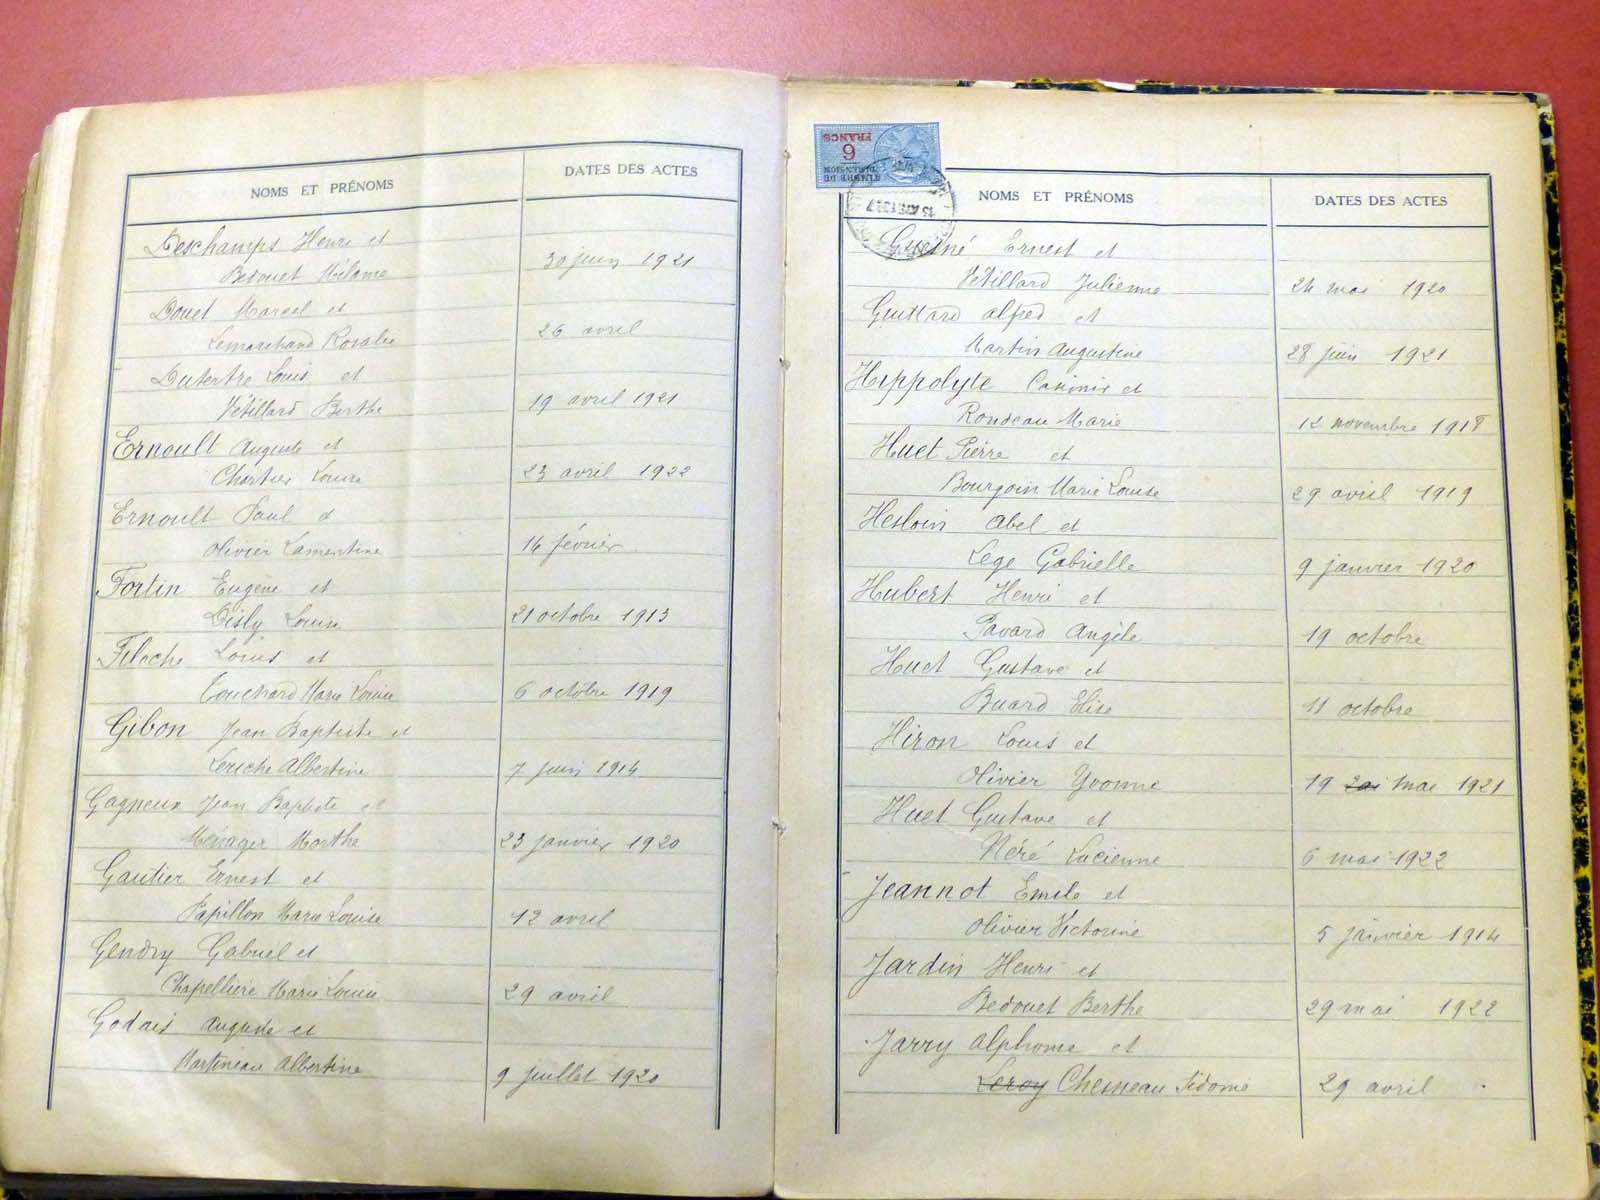 NOMS ET PRÉNOMS DATES DES ACTES
Deschamps Henri et
Bedouet Mélanie 30 juin 1921
Douet Marcel et
Lemarchand Rosalie 26 avril
Dutertre Louis et
Vétillard Berthe 19 avril 1921
Ernoult Auguste et
Chartier Louise 23 avril 1922
Ernoult Paul et
Olivier Lamentine 14 février
Fortin Eugène et
Disly Louise 21 octobre 1913
Filoche Louis et
Touchard Marie Louise 6 octobre 1919
Gibon Jean Baptiste et
Leriche Albertine 7 juin 1914
Gagneux Jean Baptiste et
Ménager Marthe 23 janvier 1920
Gautier Ernest et
Papillon Marie Louise 12 avril
Gendry Gabriel et
Chapellière Marie Louise 29 avril
Godais Auguste et
Martineau Albertine 9 juillet 1920
TIMBRE DE
DIMENSION
6
FRANCS
NOMS ET PRÉNOMS DATES DES ACTES
Guesné Ernest et
Vétillard Julienne 24 mai 1920
Guittard Alfred et
Martin Augustine 28 juin 1921
Hippolyte Casimir et
Rondeau Marie 12 novembre 1918
Huet Pierre et
Bourgoin Marie Louise 29 avril 1919
Hesloin Abel et
Lege Gabrielle 9 janvier 1920
Hubert Henri et
Pavard Angèle 19 octobre
Huet Gustave et
Buard Elise 11 octobre
Hiron Louis et
Olivier Yvonne 19 mai 1921
Huet Gustave et
Néré Lucienne 6 mai 1922
Jeannot Emile et
Olivier Victorine 5 janvier 1914
Jardin Henri et
Bedouet Berthe 29 mai 1922
Jarry Alphonse et
Leroy Chesneau Sidonie 29 avril